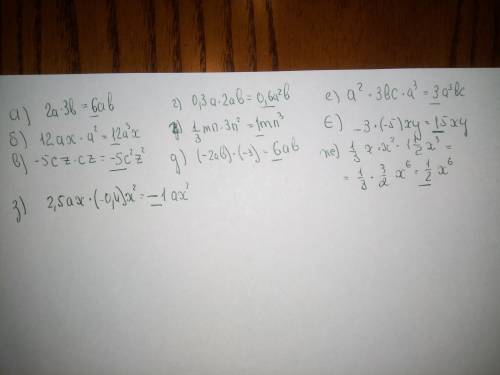 а) 2a·3b = 6ab
б) 12ax·a² = 12a³x
в) -5cz·cz = -5c²z²
г) 0,3a·2ab = 0,6a²b
1/3 mn·3n² = 1mn³
д) (-2ab)·(-3) = 6ab
е) a²·3bc·a³ = 3a⁵bc
є) -3·(-5)xy = 15xy
ж) 1/3 x·x²·1 1/2 x³ =
= 1/3 · 3/2 x⁶ = 1/2 x⁶
з) 2,5ax·(-0,4)x² = -1ax³